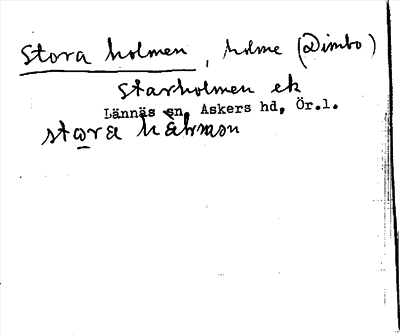 Stora holmen, holme (Dimbo)
Storholmen ek
Lännäs sn, Askers hd, Ör.l.
stora